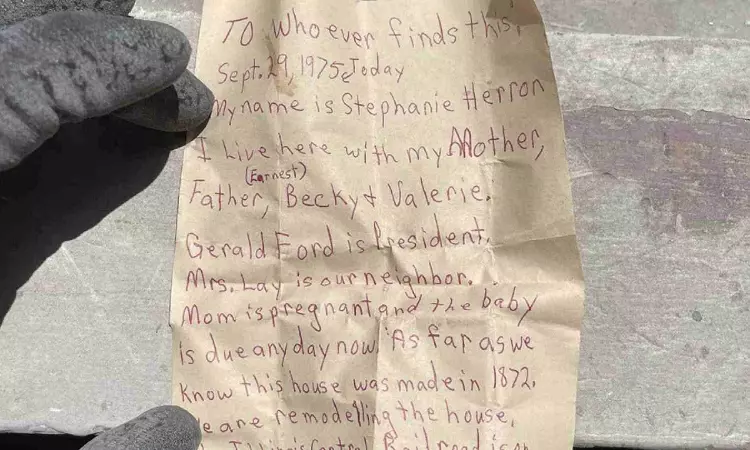 To Whoever finds this,
Sept. 29, 1975 Today
My name is Stephanie Herron
I Live here with my Mother,
(Earnest)
Father, Becky & Valerie.
Gerald Ford is President.
Mrs. Lay is our neighbor.
Mom is pregnant and the baby
is due any day now. As far as we
know this house was made in 1872.
We are remodelling the house.
Illinois Central Railroad is on